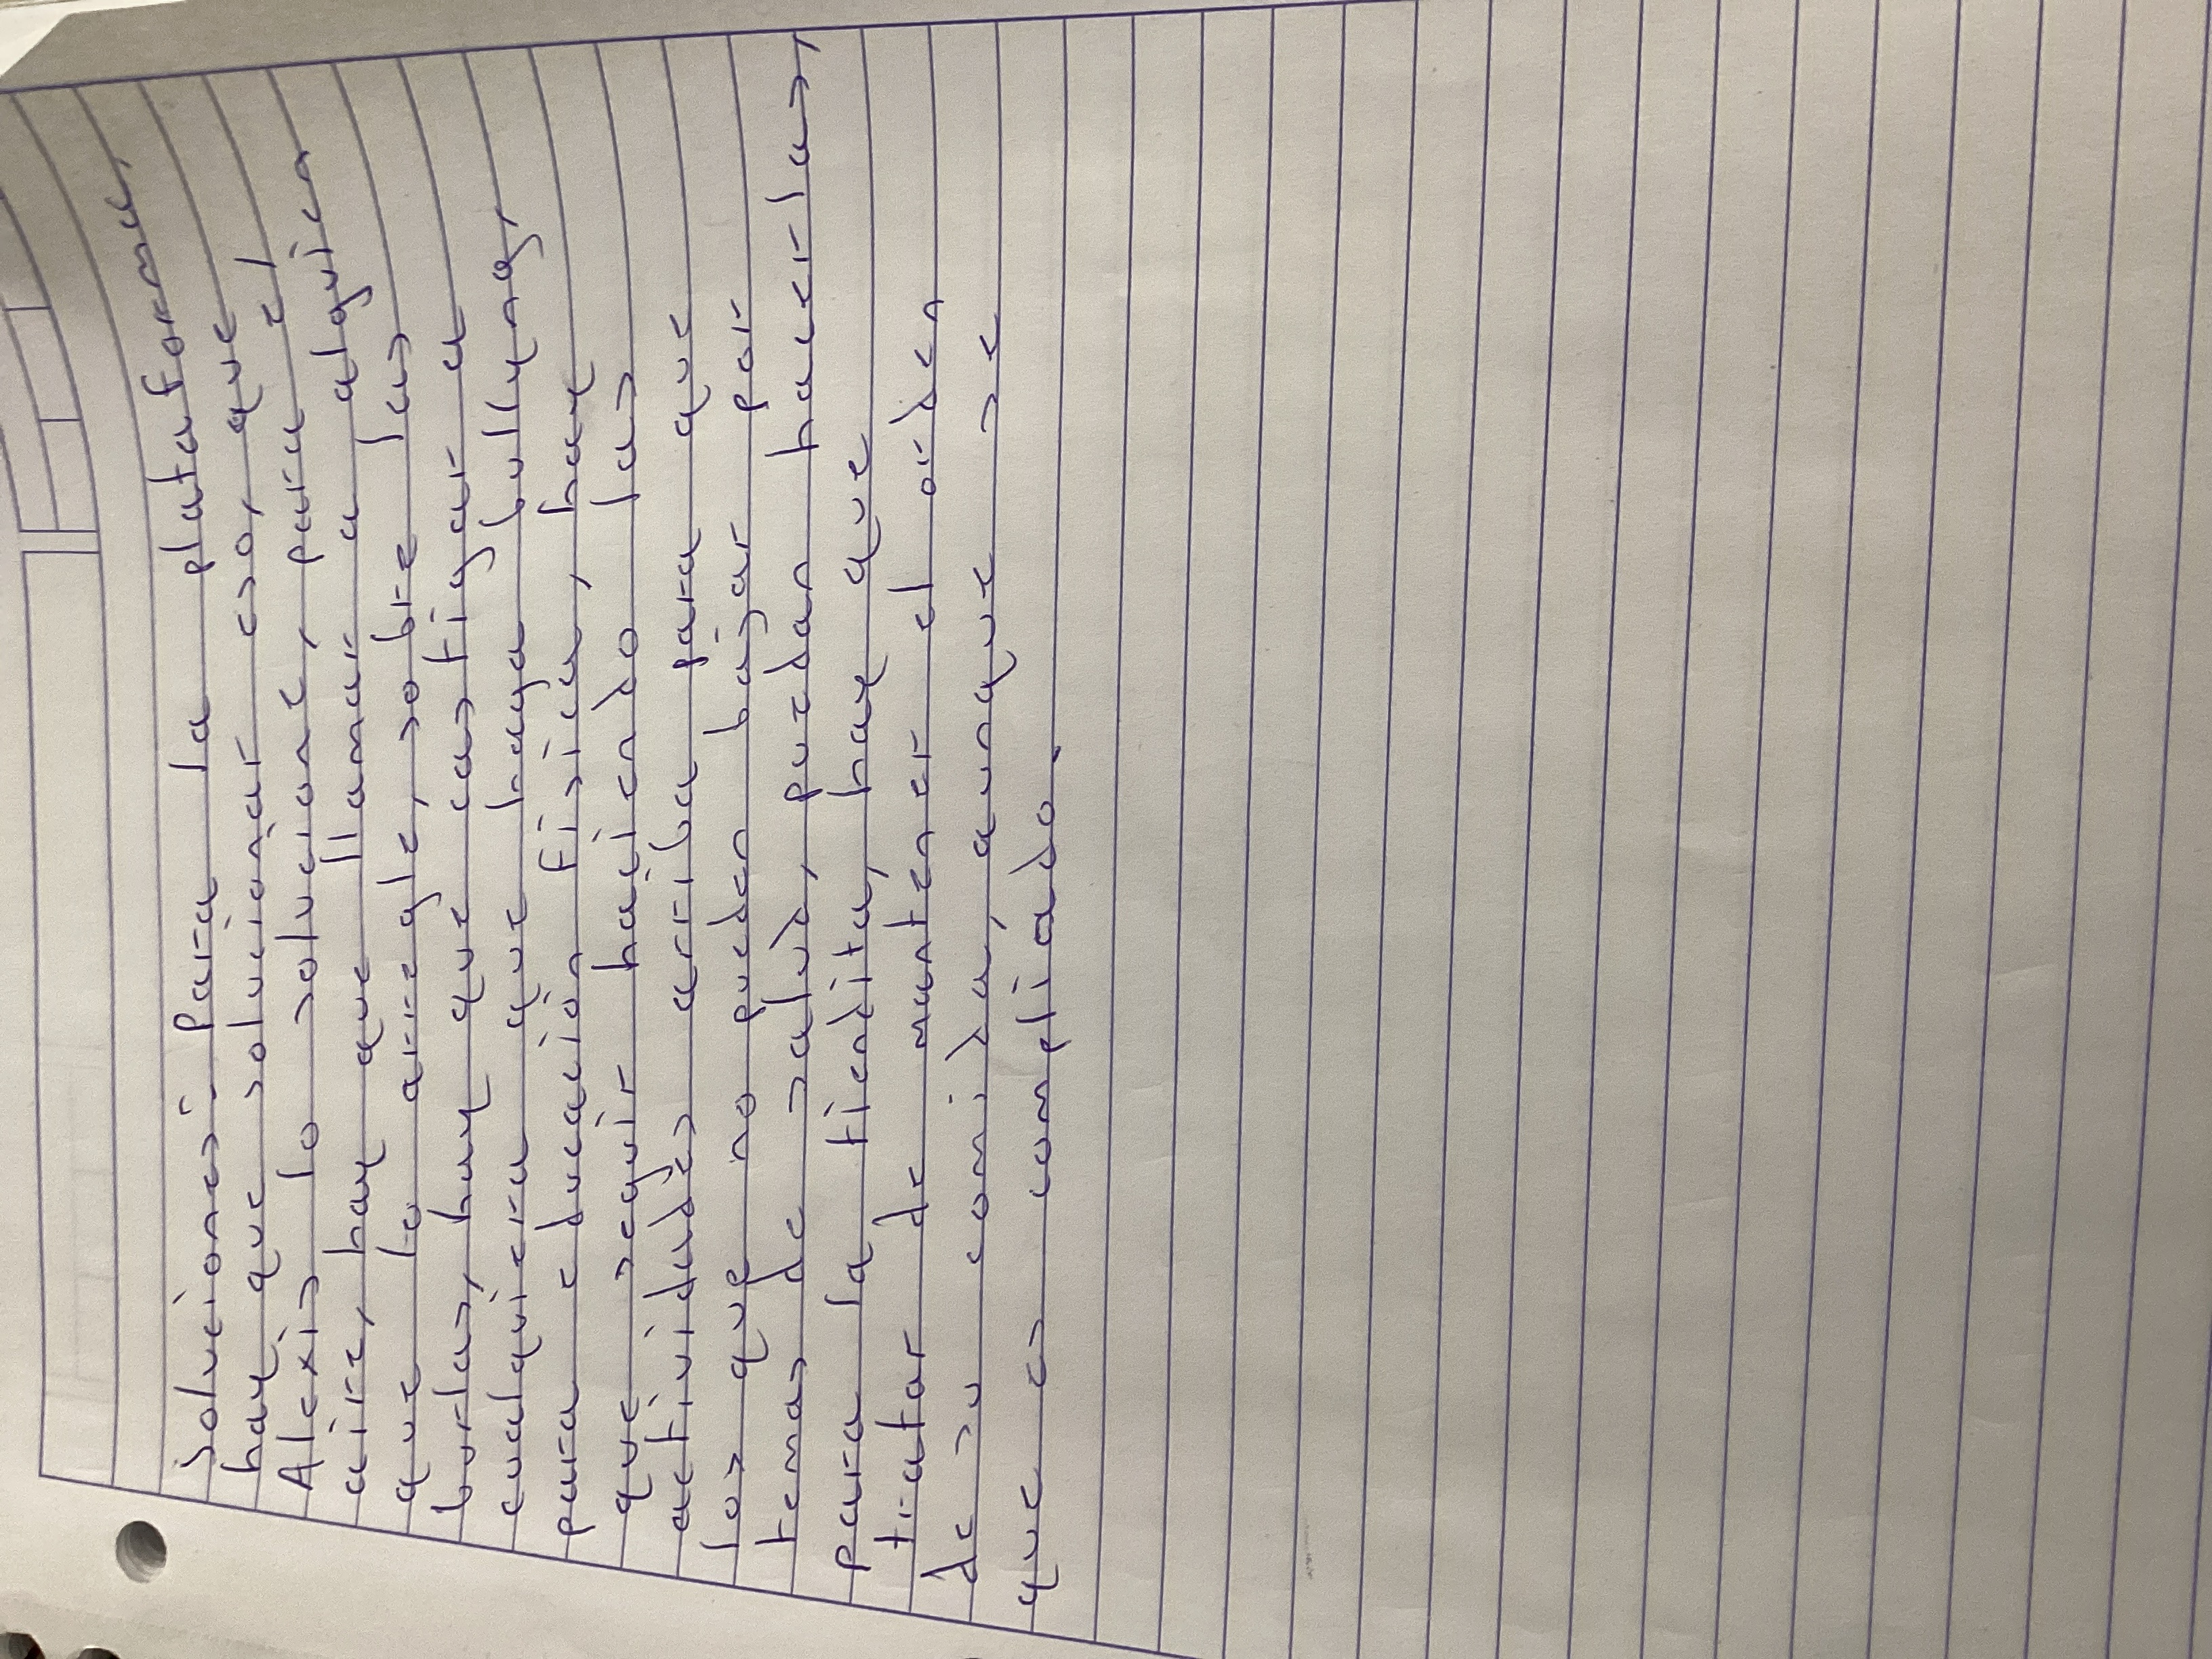 Soluciones:- Para la plataforma,
hay que solucionar eso, que
Alexis lo solucione, para el
aire, hay que llamar a alguien
que lo arregle, sobre las
burlas, hay que castigar a
cualquiera que haga bullyng,
para educación física, hay
que seguir haciendo las
actividades arriba para que
los que no pueden bajar por
temas de salud, puedan hacerlas,
para la tiendita, hay que
tratar de mantener el orden
de su comida, aunque se
que es compliado.